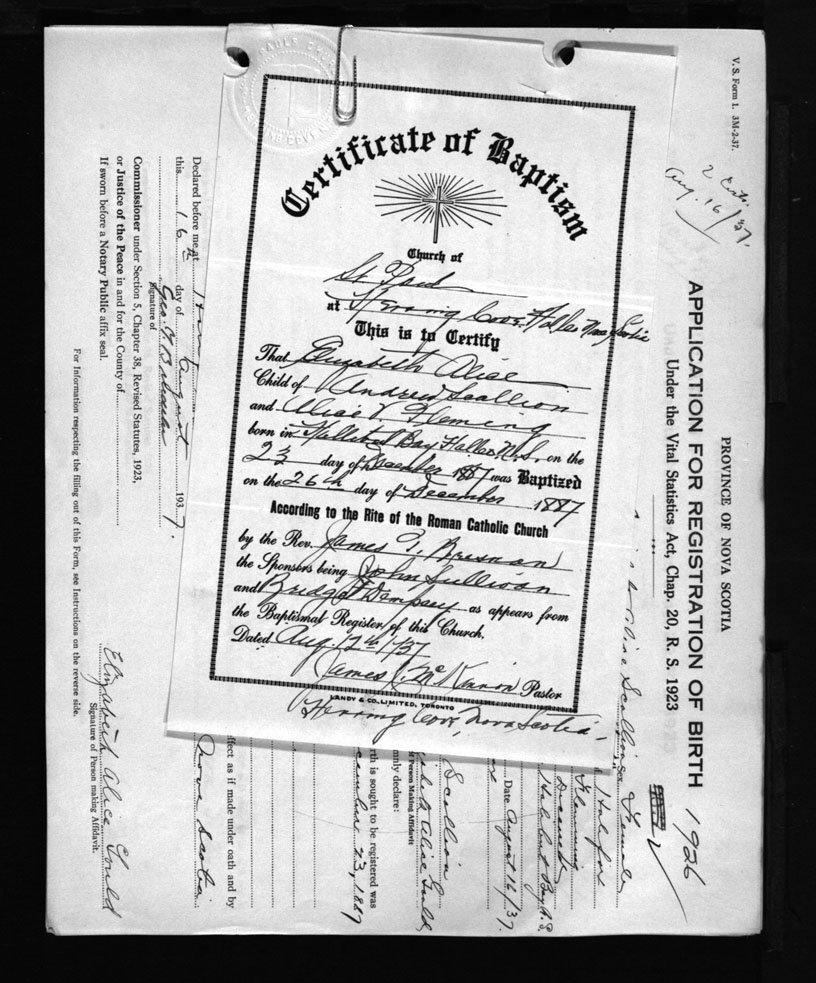 Certificate of Baptism
Church of
St. Paul
at Herring Cove. Halifax Nova Scotia
This is to Certify
That Elizabeth Alice
Child of Andrew Scallion
and Alice Fleming
born in Bay Halifax N.S. on the
23 day of December 1887 was Baptized
on the 26th day of December 1887
According to the Rite of the Roman Catholic Church
by the Rev. James T. Bresnan
the Sponsors being John Sullivan
and Bridget Dempsey as appears from
the Baptismal Register of this Church.
Dated Aug. 12th 1937
James C. McKinnon Pastor
LANDY & CO. LIMITED, TORONTO
Herring Cove, Nova Scotia.
V. S. Form 1. 3M-2-37.
2 Certs.
Aug. 16/37.
PROVINCE OF NOVA SCOTIA
APPLICATION FOR REGISTRATION OF BIRTH 1926
Under the Vital Statistics Act, Chap. 20, R. S. 1923
Alice Scallion Sex Female
Halifax
Deceased
Flemming
Halibut Bay N.S.
Date August 16/37.
Scallion
of Person Making Affidavit
Alice Gould
mnly declare:
rth is sought to be registered was
cember 23, 1887
ffect as if made under oath and by
Nova Scotia
Declared before me at
this 16th day of August 1937.
Signature of
Commissioner under Section 5, Chapter 38, Revised Statutes, 1923,
or Justice of the Peace in and for the County of
If sworn before a Notary Public affix seal.
Elizabeth Alice Gould
Signature of Person making Affidavit.
For Information respecting the filling out of this Form, see Instructions on the reverse side.